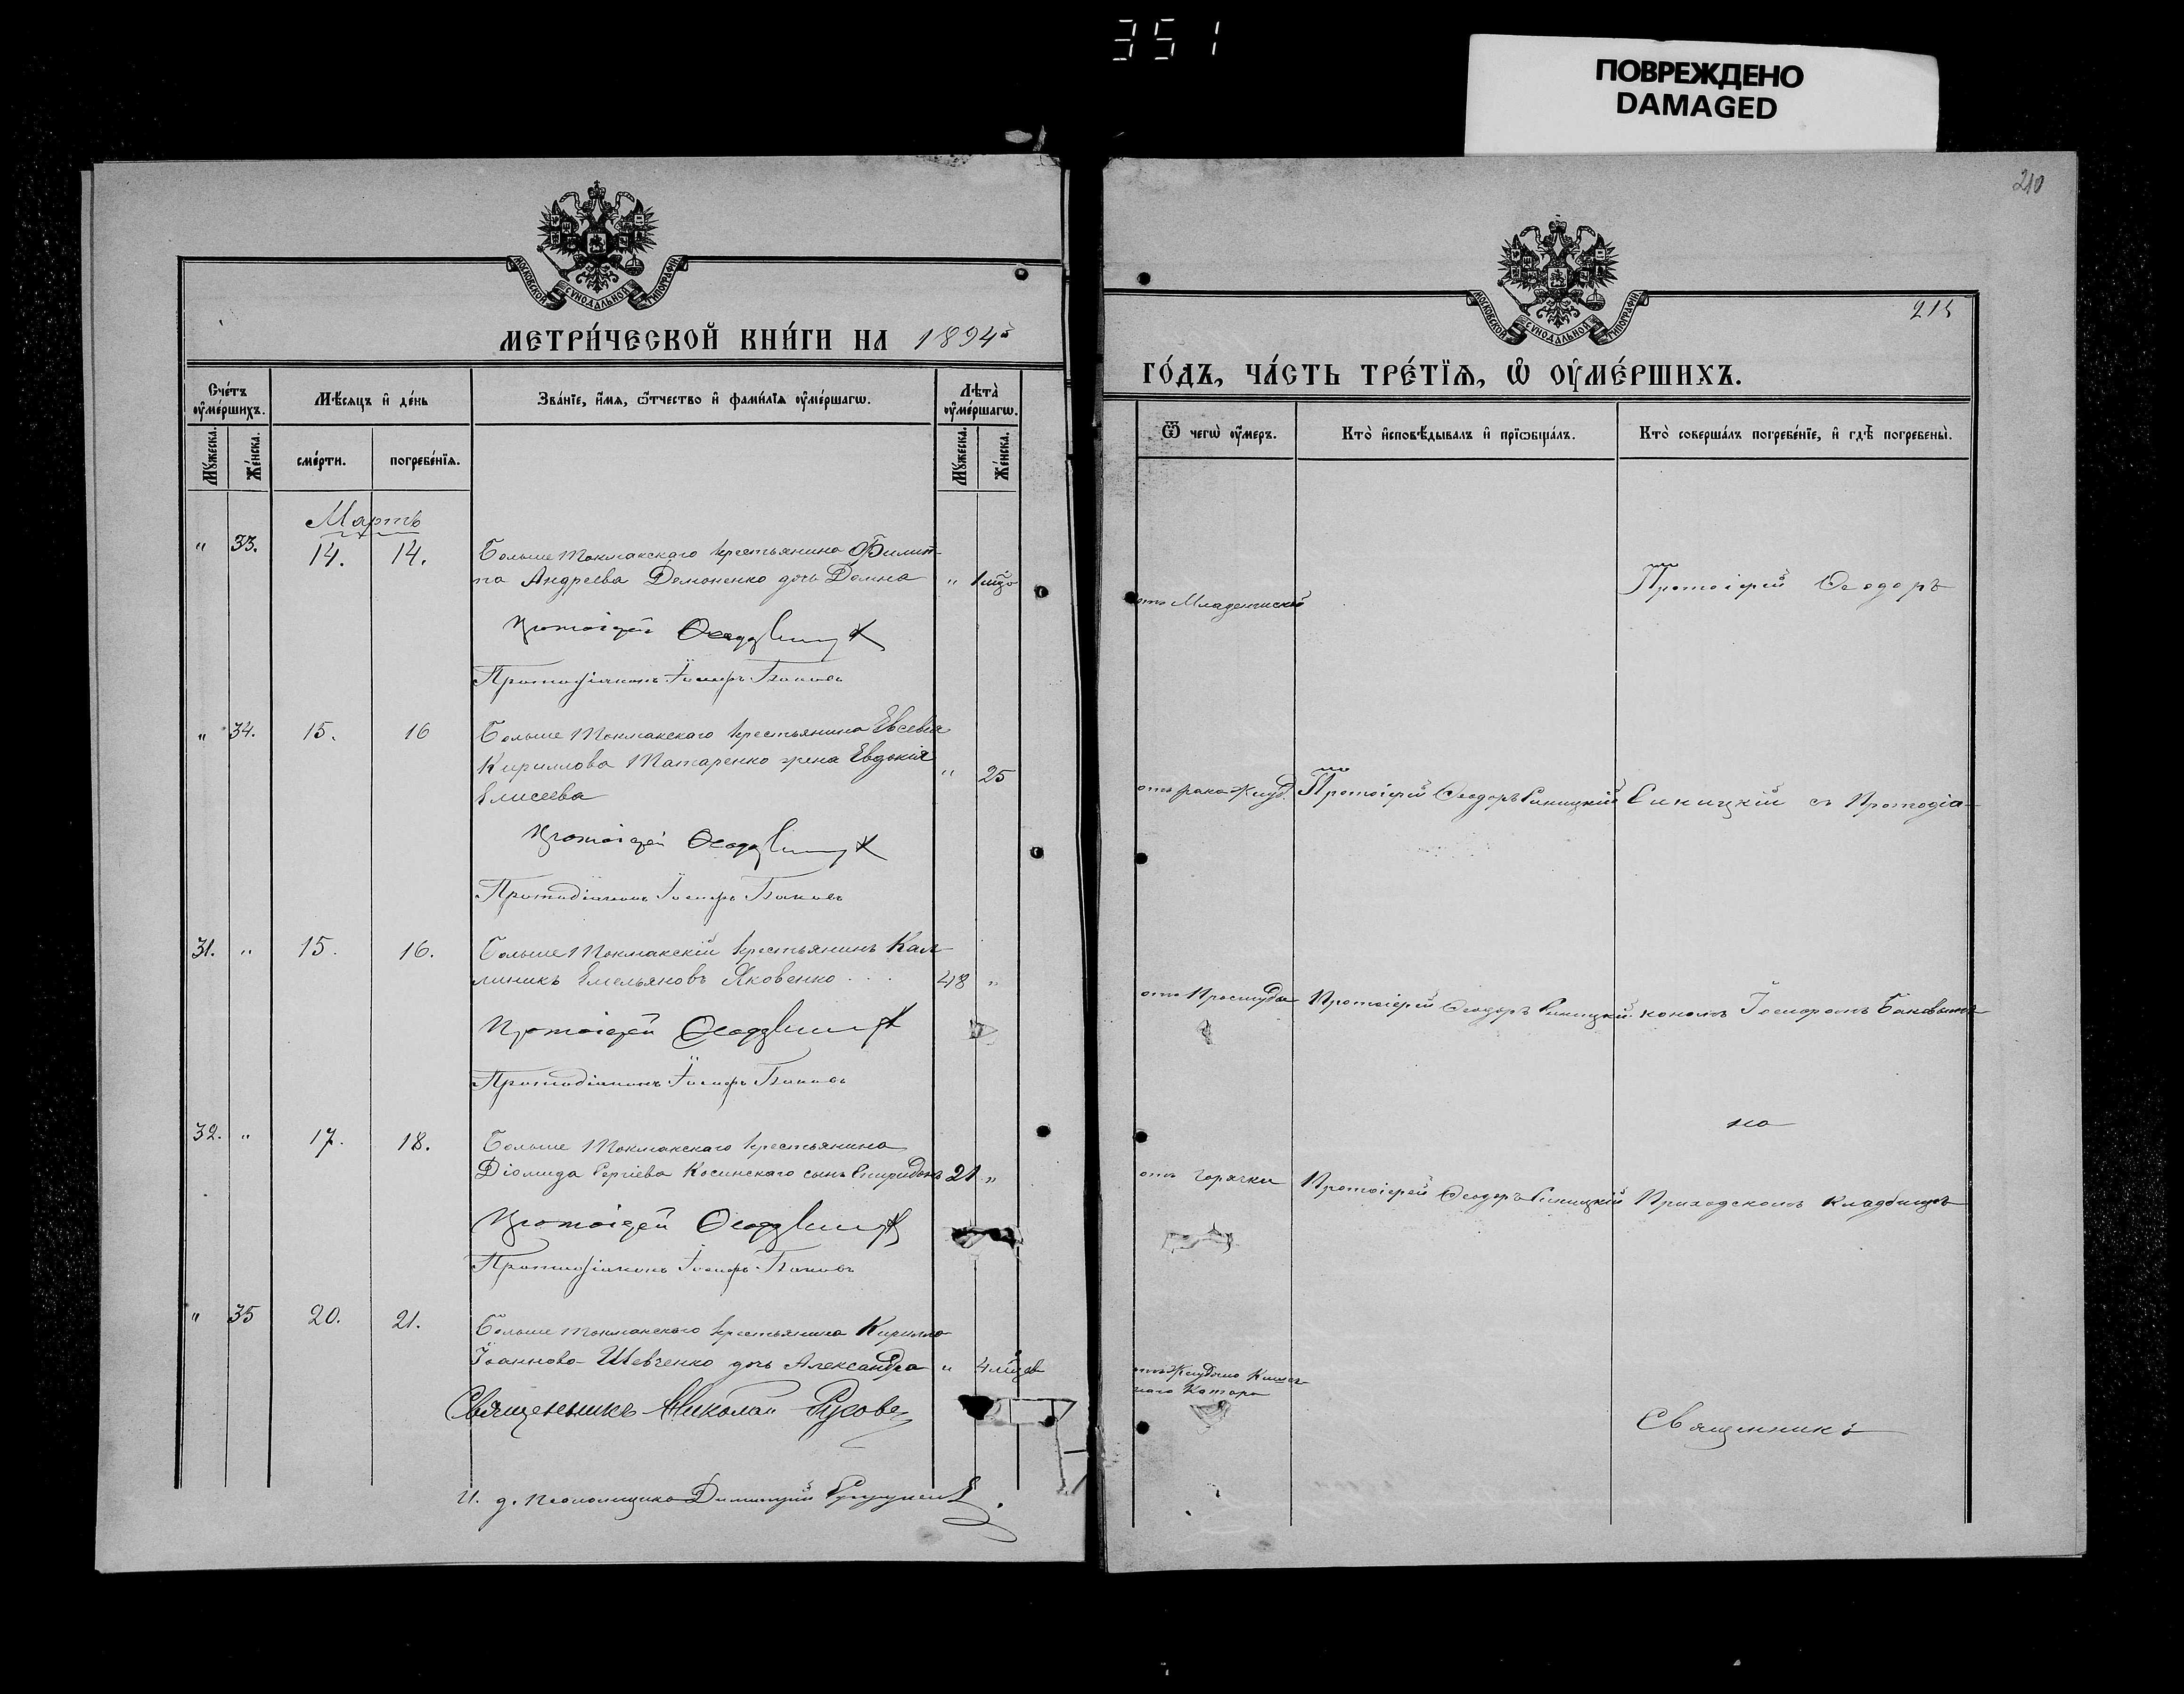 351
ПОВРЕЖДЕНО
DAMAGED
МОСКОВСКОЙ СУНОДАЛЬНОЙ ТИПОГРАФІИ
МЕТРИ́ЧЕСКОЙ КНИ́ГИ НА 1894й
Сче́тъ оумéршихъ.
Мѣ́сяцъ и де́нь
Зва́нїе, и́мя, ѿ́тчество и фами́лїя оуме́ршагѡ.
Лѣта̀ оуме́ршагѡ.
Му́жеска.
Же́нска.
сме́рти.
погребе́нїя.
Му́жеска.
Же́нска.
Мартъ
" 33. 14. 14. Больше Токмакскаго крестьянина Филип-
па Андреева Демоненко дочь Домна " 1 мѣс
Протоіерей Ѳеодоръ
Протодіаконъ Іосифъ Баковъ
" 34. 15. 16 Больше Токмакскаго крестьянина Евсевія
Кириллова Татаренко жена Евдокія " 25
Елисеева
Протоіерей Ѳеодоръ
Протодіаконъ Іосифъ Баковъ
31. " 15. 16. Больше Токмакскій крестьянинъ Кал-
линикъ Емельяновъ Яковенко 48 "
Протоіерей Ѳеодоръ
Протодіаконъ Іосифъ Баковъ
32. " 17. 18. Больше Токмакскаго крестьянина
Діомида Сергіева Косинскаго сынъ Спиридонъ 21 "
Протоіерей Ѳеодоръ
Протодіаконъ Іосифъ Баковъ
" 35 20. 21. Больше Токмакскаго крестьянина Кирилла
Іоаннова Шевченко дочь Александра " 4 мѣсяцев
Священникъ Николай Русовъ
И. д. псаломщика Димитрій
210
МОСКОВСКОЙ СУНОДАЛЬНОЙ ТИПОГРАФІИ
215
ГО́ДЪ, ЧА́СТЬ ТРЕ́ТЇѦ, Ѡ ОУМЕ́РШИХЪ.
Ѿ чегѡ̀ оу́меръ.
Кто̀ исповѣ́дывалъ и прїѡбща́лъ.
Кто̀ соверша́лъ погребе́нїе, и гдѣ̀ погребены̀.
отъ Младенческой
Протоіерей Ѳеодоръ
отъ рака желуд. Протоіерей Ѳеодоръ Синицкій Синицкій съ Протодіа-
отъ Простуды Протоіерей Ѳеодоръ Синицкій кономъ Іосифомъ Баковымъ
на
отъ горячки Протоіерей Ѳеодоръ Синицкій Приходскомъ кладбищѣ
отъ Желудочно Кишеч-
наго Катара
Священникъ